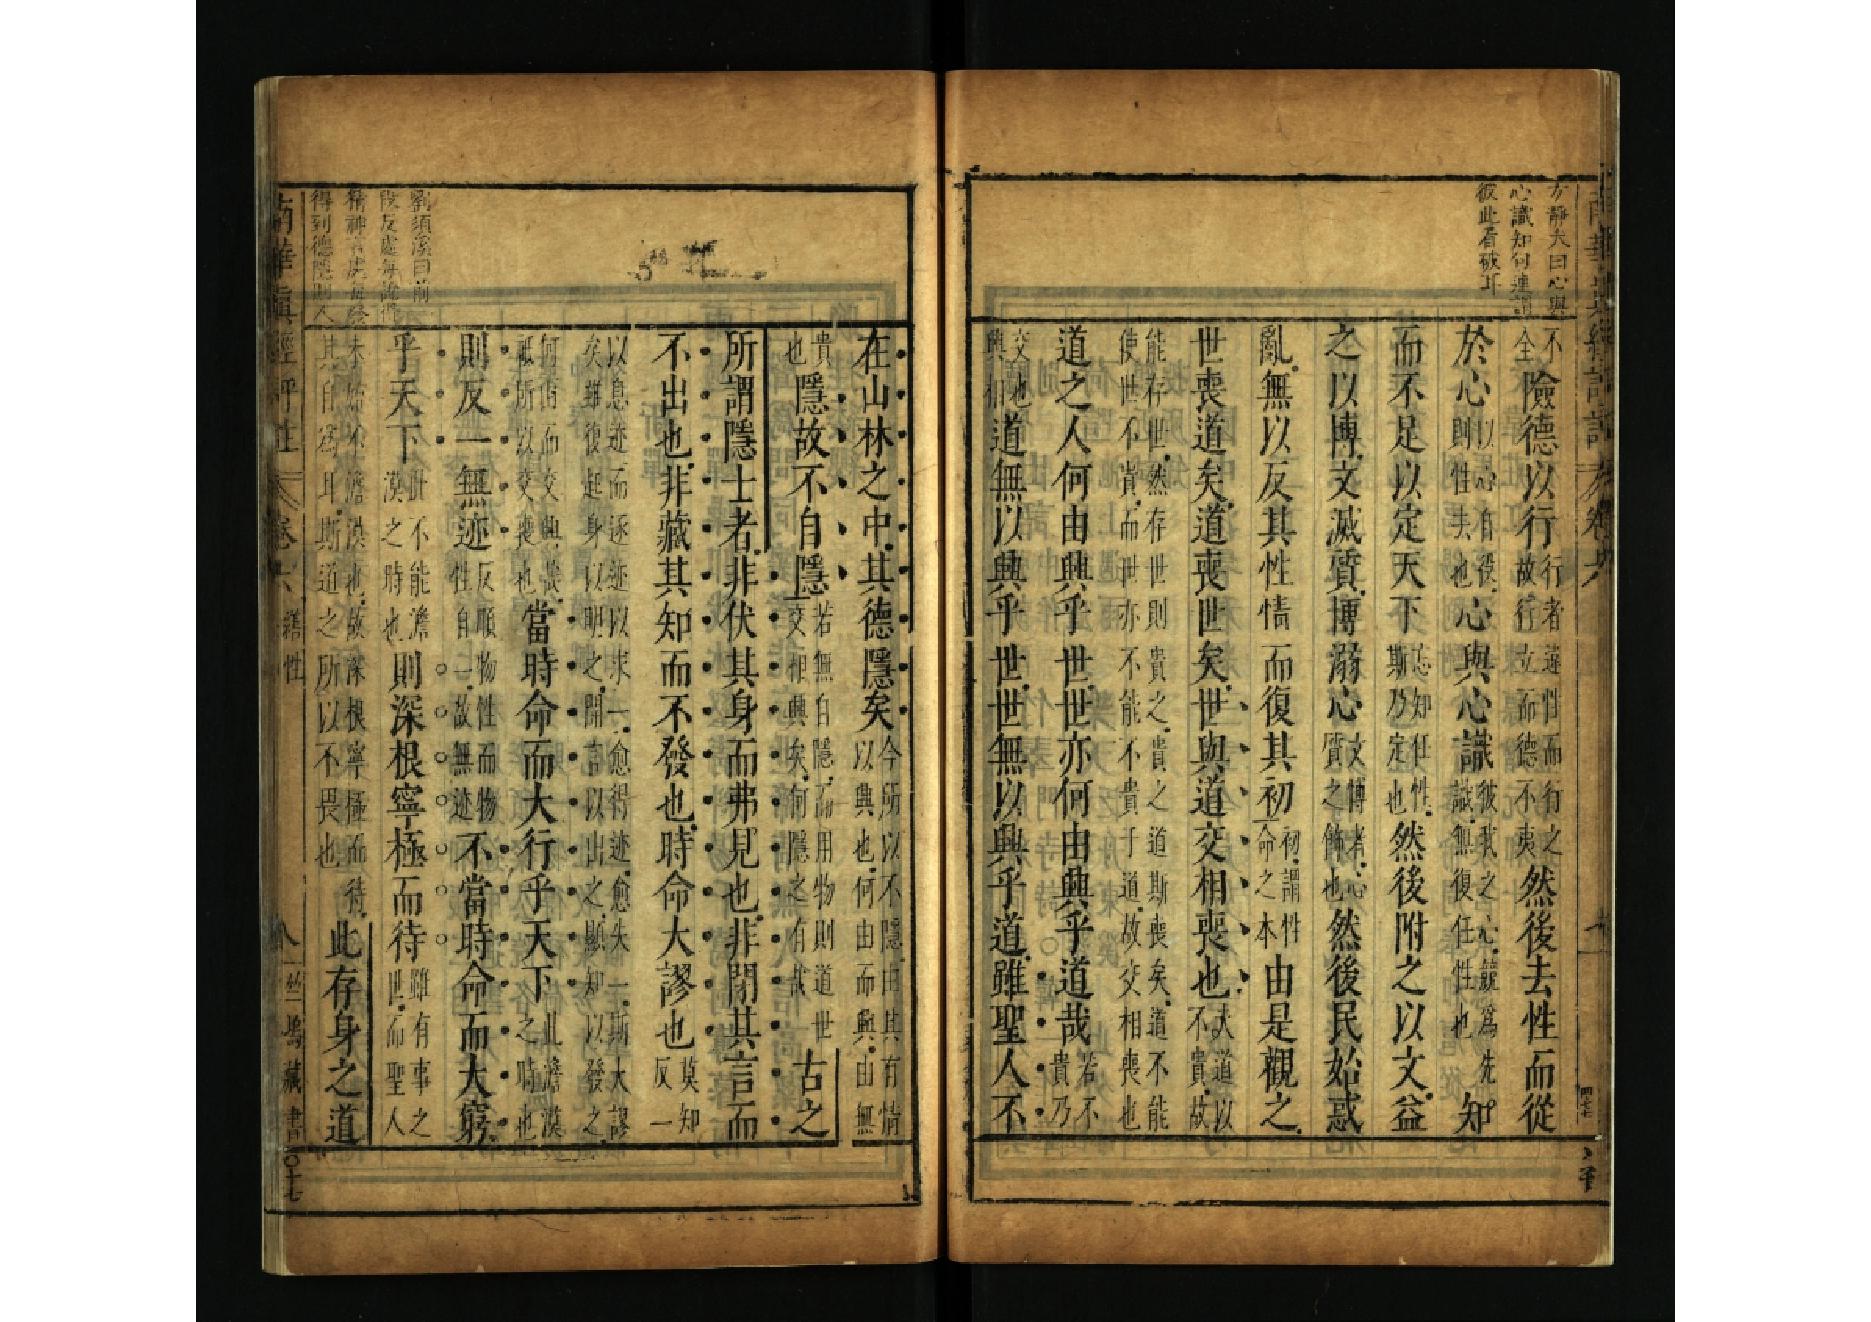 方靜夫曰心與
心識知句連謂
彼此看破耳
不
全
險德以行
行者違性而行之
故行立而德不夷
然後去性而從
於心
以心自役
則性去也
心與心識
彼我之心競為先
識無復任性也
知
而不足以定天下
忘知任性
斯乃定也
然後附之以文益
之以博文滅質博溺心
文博者心
質之飾也
然後民始惑
亂無以反其性情而復其初
初謂性
命之本
由是觀之
世喪道矣道喪世矣世與道交相喪也
夫道以
不貴故
能存世然存世則貴之貴之道斯喪矣道不能
使世不貴而世亦不能不貴于道故交相喪也
道之人何由興乎世世亦何由興乎道哉
若不
貴乃
交也
興相
道無以興乎世世無以興乎道雖聖人不
在山林之中其德隱矣
今所以不隱由其有情
以興也何由而興由無
貴
也
隱故不自隱
若無自隱而用物則道世
交相興矣何隱之有哉
古之
所謂隱士者非伏其身而弗見也非閉其言而
不出也非藏其知而不發也時命大謬也
莫知
反一
以息迹而逐迹以求一愈得迹愈失一斯大謬
矣雖復起身以明之開言以出之顯知以發之
何由而交興哉
祗所以交喪也
當時命而大行乎天下
此澹漠
之時也
則反一無迹
反順物性而物
性自一故無迹
不當時命而大窮
乎天下
此不能澹
漠之時也
則深根寧極而待
雖有事之
世而聖人
未始不澹漠也故深根寧極而待
其自為耳斯道之所以不畏也
此存身之道
劉須溪曰前一
段反處每說得
得到德隱則人
南華真經評註 卷六 繕性 八 竺塢藏書